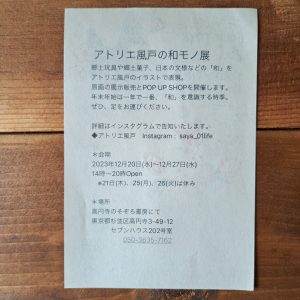 アトリエ風戸の和モノ展
郷土玩具や郷土菓子、日本の文様などの「和」を
アトリエ風戸のイラストで表現。
原画の展示販売とPOP UP SHOPを開催します。
年末年始は一年で一番、「和」を意識する時季、
ぜひ、足をお運びください。
詳細はインスタグラムで告知いたします。
◆アトリエ風戸　Instagram：saya_01life
＊会期
2023年12月20日(水)〜12月27日(水)
14時〜20時Open
※21日(木)、25(月)、26(火)は休み
＊場所
高円寺のそぞろ書房にて
東京都杉並区高円寺3-49-12
セブンハウス202号室
050-3635-7162